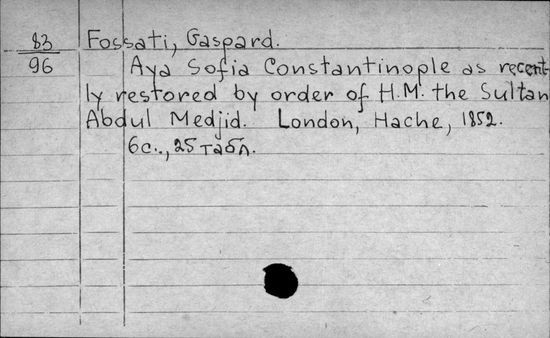 83 Fossati, Gaspard.
96 Aya Sofia Constantinople as recent-
ly restored by order of H.M. the Sultan
Abdul Medjid. London, Hache, 1852.
6с., 25 табл.